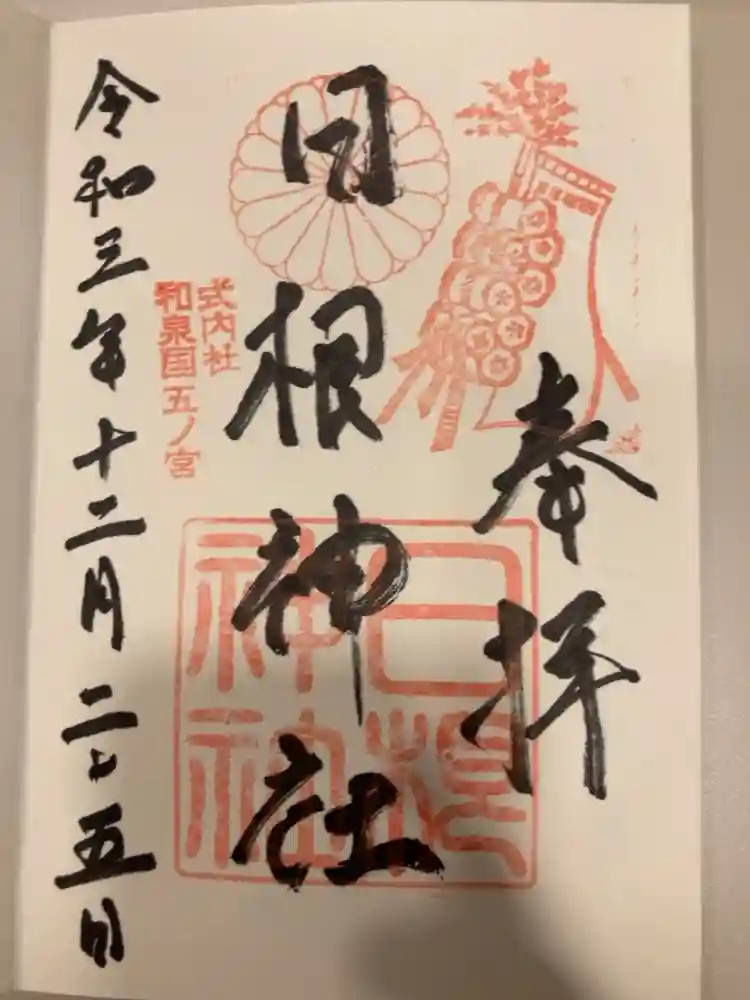 奉拝
日根神社
式内社
和泉国五ノ宮
日根
神社
令和三年十二月二十五日